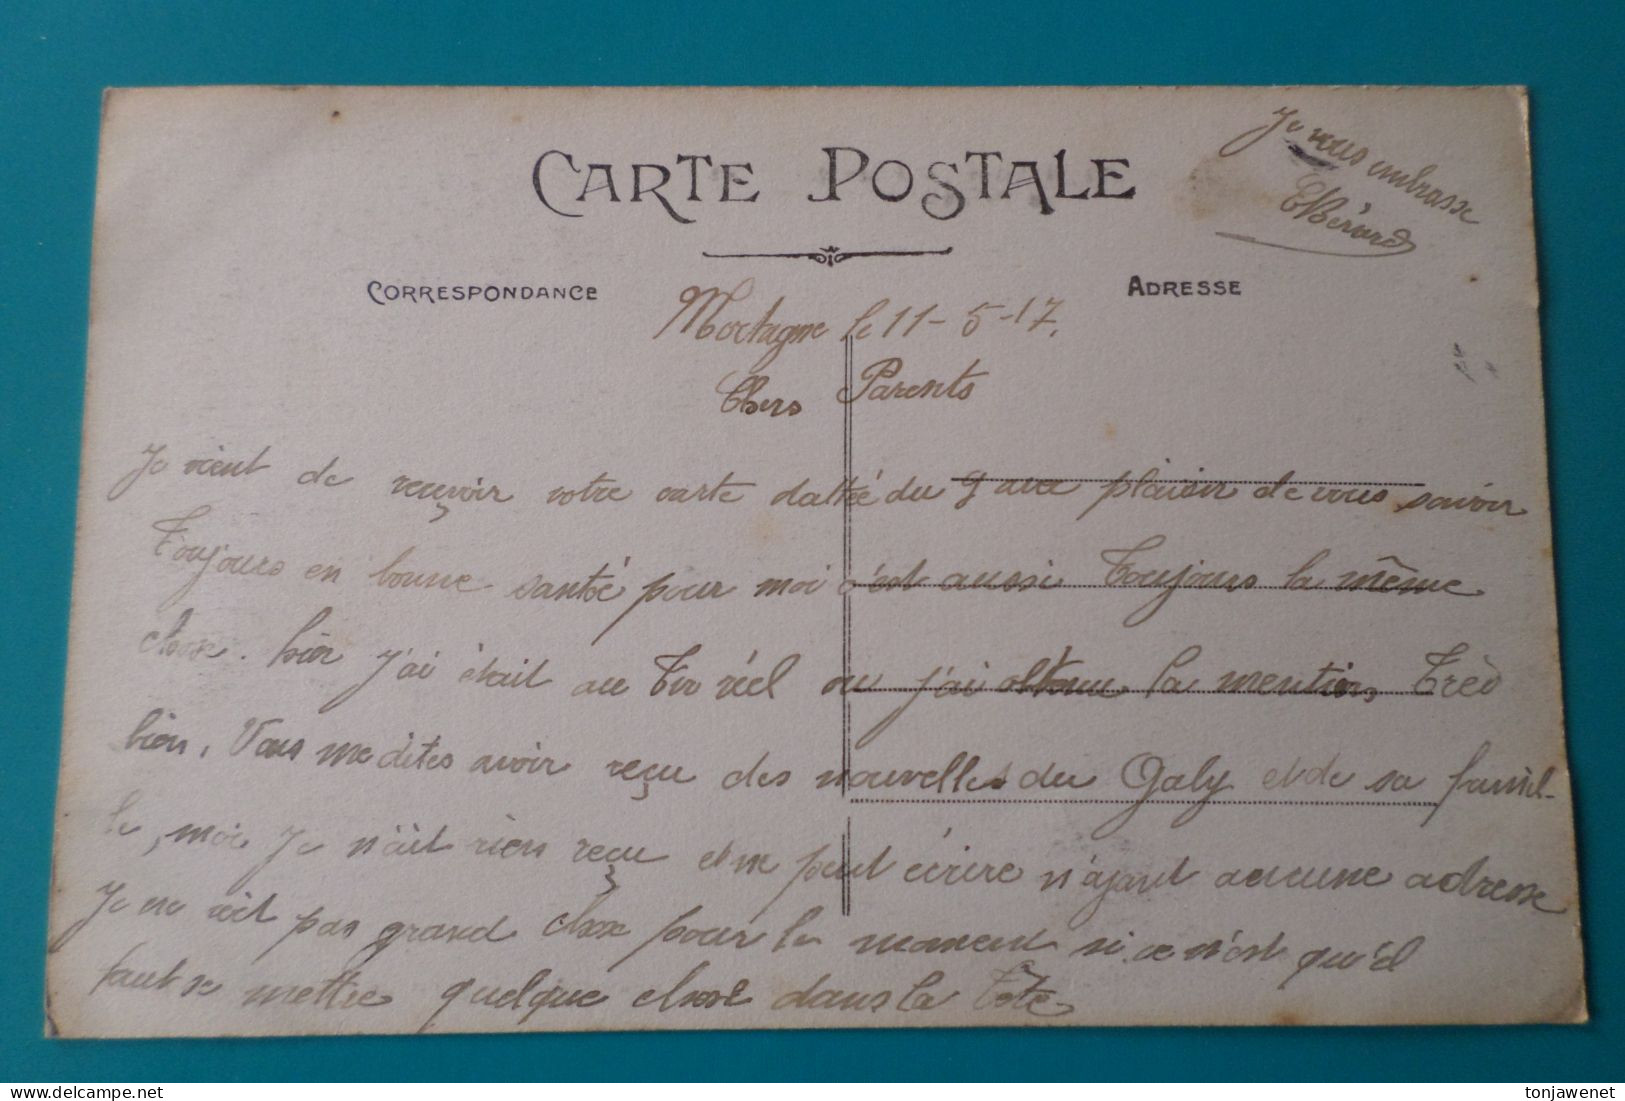 Je vous embrasse
CARTE POSTALE
CORRESPONDANCE
ADRESSE
Mortagne le 11-5-17.
Chers Parents
Je vient de reçevoir votre carte dattée du 9 avec plaisir de vous savoir
Toujours en bonne santée pour moi c'est aussi Toujours la même
chose. hier j'ai était au Tir réel ou j'ai obtenue la mention Très
bien, Vous me dites avoir reçu des nouvelles du Galy et de sa famil-
le, moi Je n'ait rien reçu et ne peut écrire n'ajant aucune adresse
Je ne voit pas grand chose pour le moment si ce n'est qu'il
faut se mettre quelque chose dans la Tête
tonjawenet